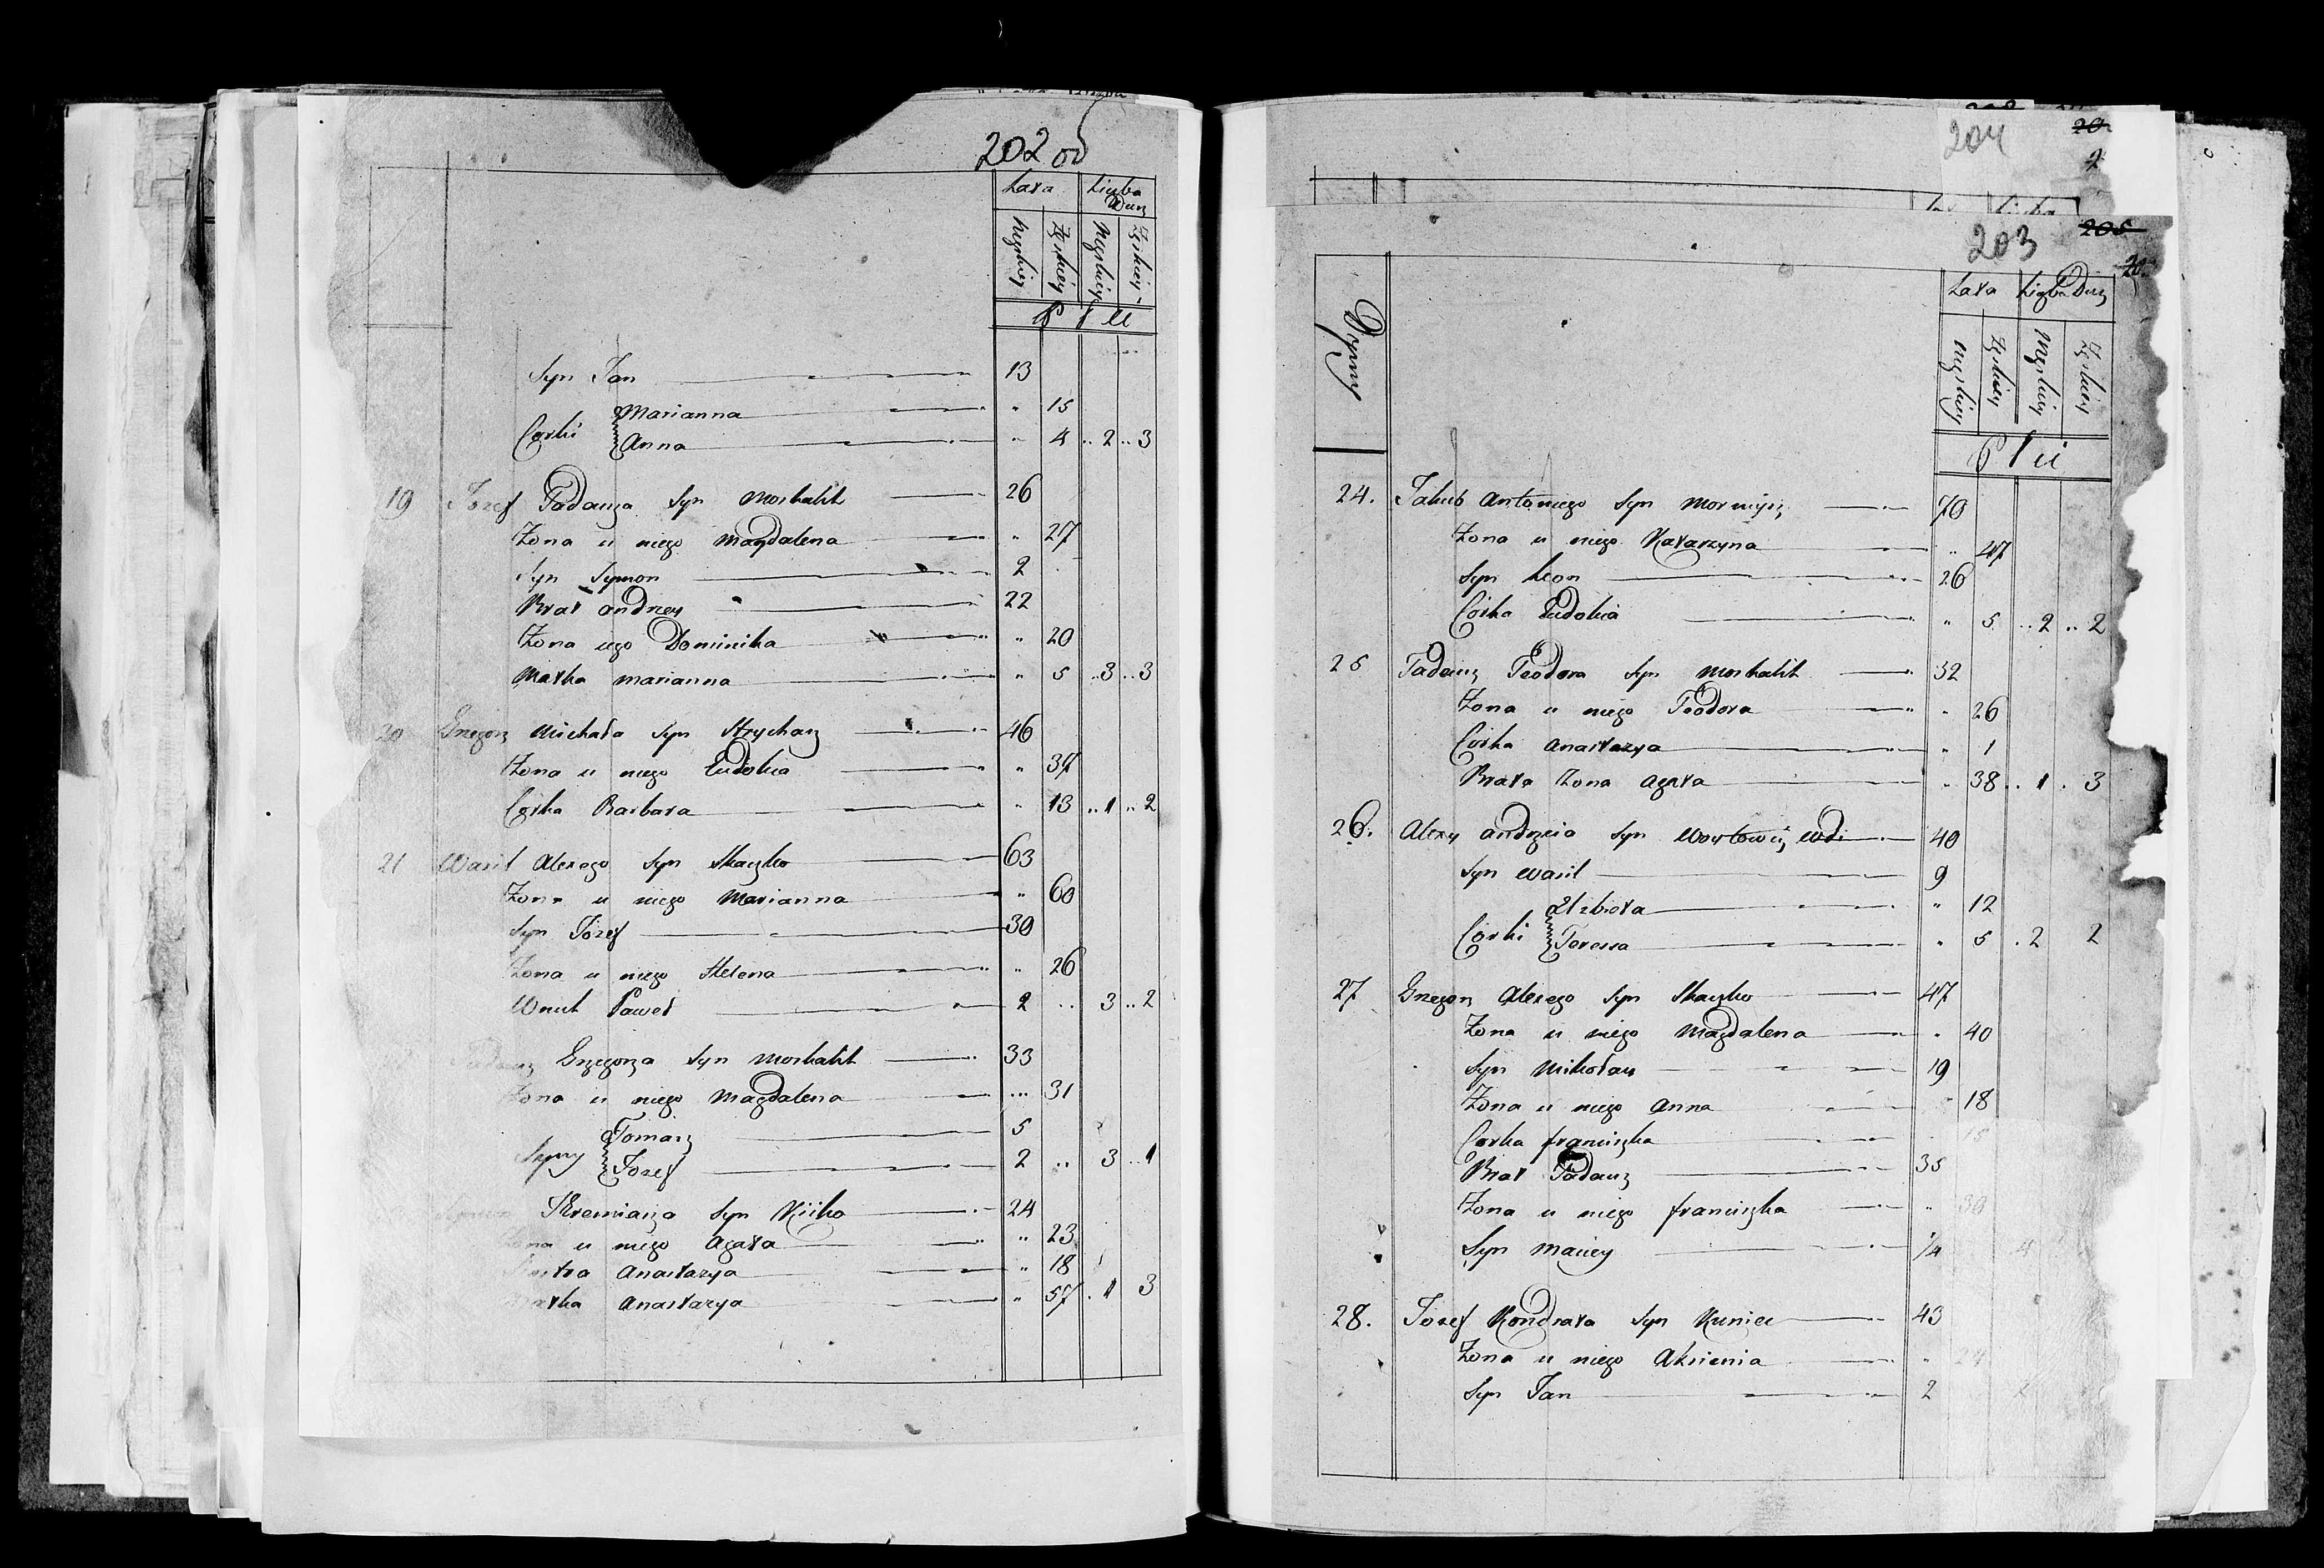 202 об
Lata Liczba Dusz
Męzkiey Zęskiey Męzkiey Zęskiey
Płci
Syn Jan 13
Corki Marianna " 15
Anna " 4 .. 2 .. 3
19 Jozef Tadeusza Syn Moskalik 26
Zona u niego Magdalena " 27
Syn Symon 2
Brat Andrzey 22
Zona iego Dominika " 20
Matka Marianna " 5 .. 3 .. 3
20 Grzegorz Michała Syn Strycharz 46
Zona u niego Eudokia " 37
Corka Barbara " 13 .. 1 .. 2
21 Wasil Alexego Syn Skaczko 63
Zona u niego Marianna " 60
Syn Józef 30
Zona u niego Helena " 26
Wnuk Paweł 2 .. 3 .. 2
Tadeusz Grzegorza Syn Moskalik 33
Zona u niego Magdalena ... 31
Syny Tomasz 5
Jozef 2 .. 3 .. 1
Syn 24
Zona u niego Agata " 23
Siostra Anastazya " 18
Matka Anastazya " 57 . 1 3
204
203
205
Dymy
Lata Liczba Dusz
Męzkiey Zęskiey Męzkiey Zęskiey
Płci
24. Jakub Antoniego Syn 70
Zona u niego Katarzyna " 47
Syn Leon 26
Corka Eudokia " 5 .. 2 .. 2
25 Tadeusz Teodora Syn Moskalik 32
Zona u niego Teodora " 26
Corka Anastazya " 1
Brata Zona Agata " 38 .. 1 . 3
26. Alexy Andrzeia Syn Woytowicz wd: 40
Syn Wasil 9
Corki Elzbieta " 12
Teressa " 5 . 2 2
27 Grzegorz Alexego Syn Skaczko 47
Zona u niego Magdalena " 40
Syn Mikołay 19
Zona u niego Anna " 18
Corka Franciszka 15
Brat Tadeusz 35
Zona u niego Franciszka " 30
Syn Maciey 1/4
28. Józef Kondrata Syn Kuniec 43
Zona u niego Aksienia " 24
Syn Jan 2